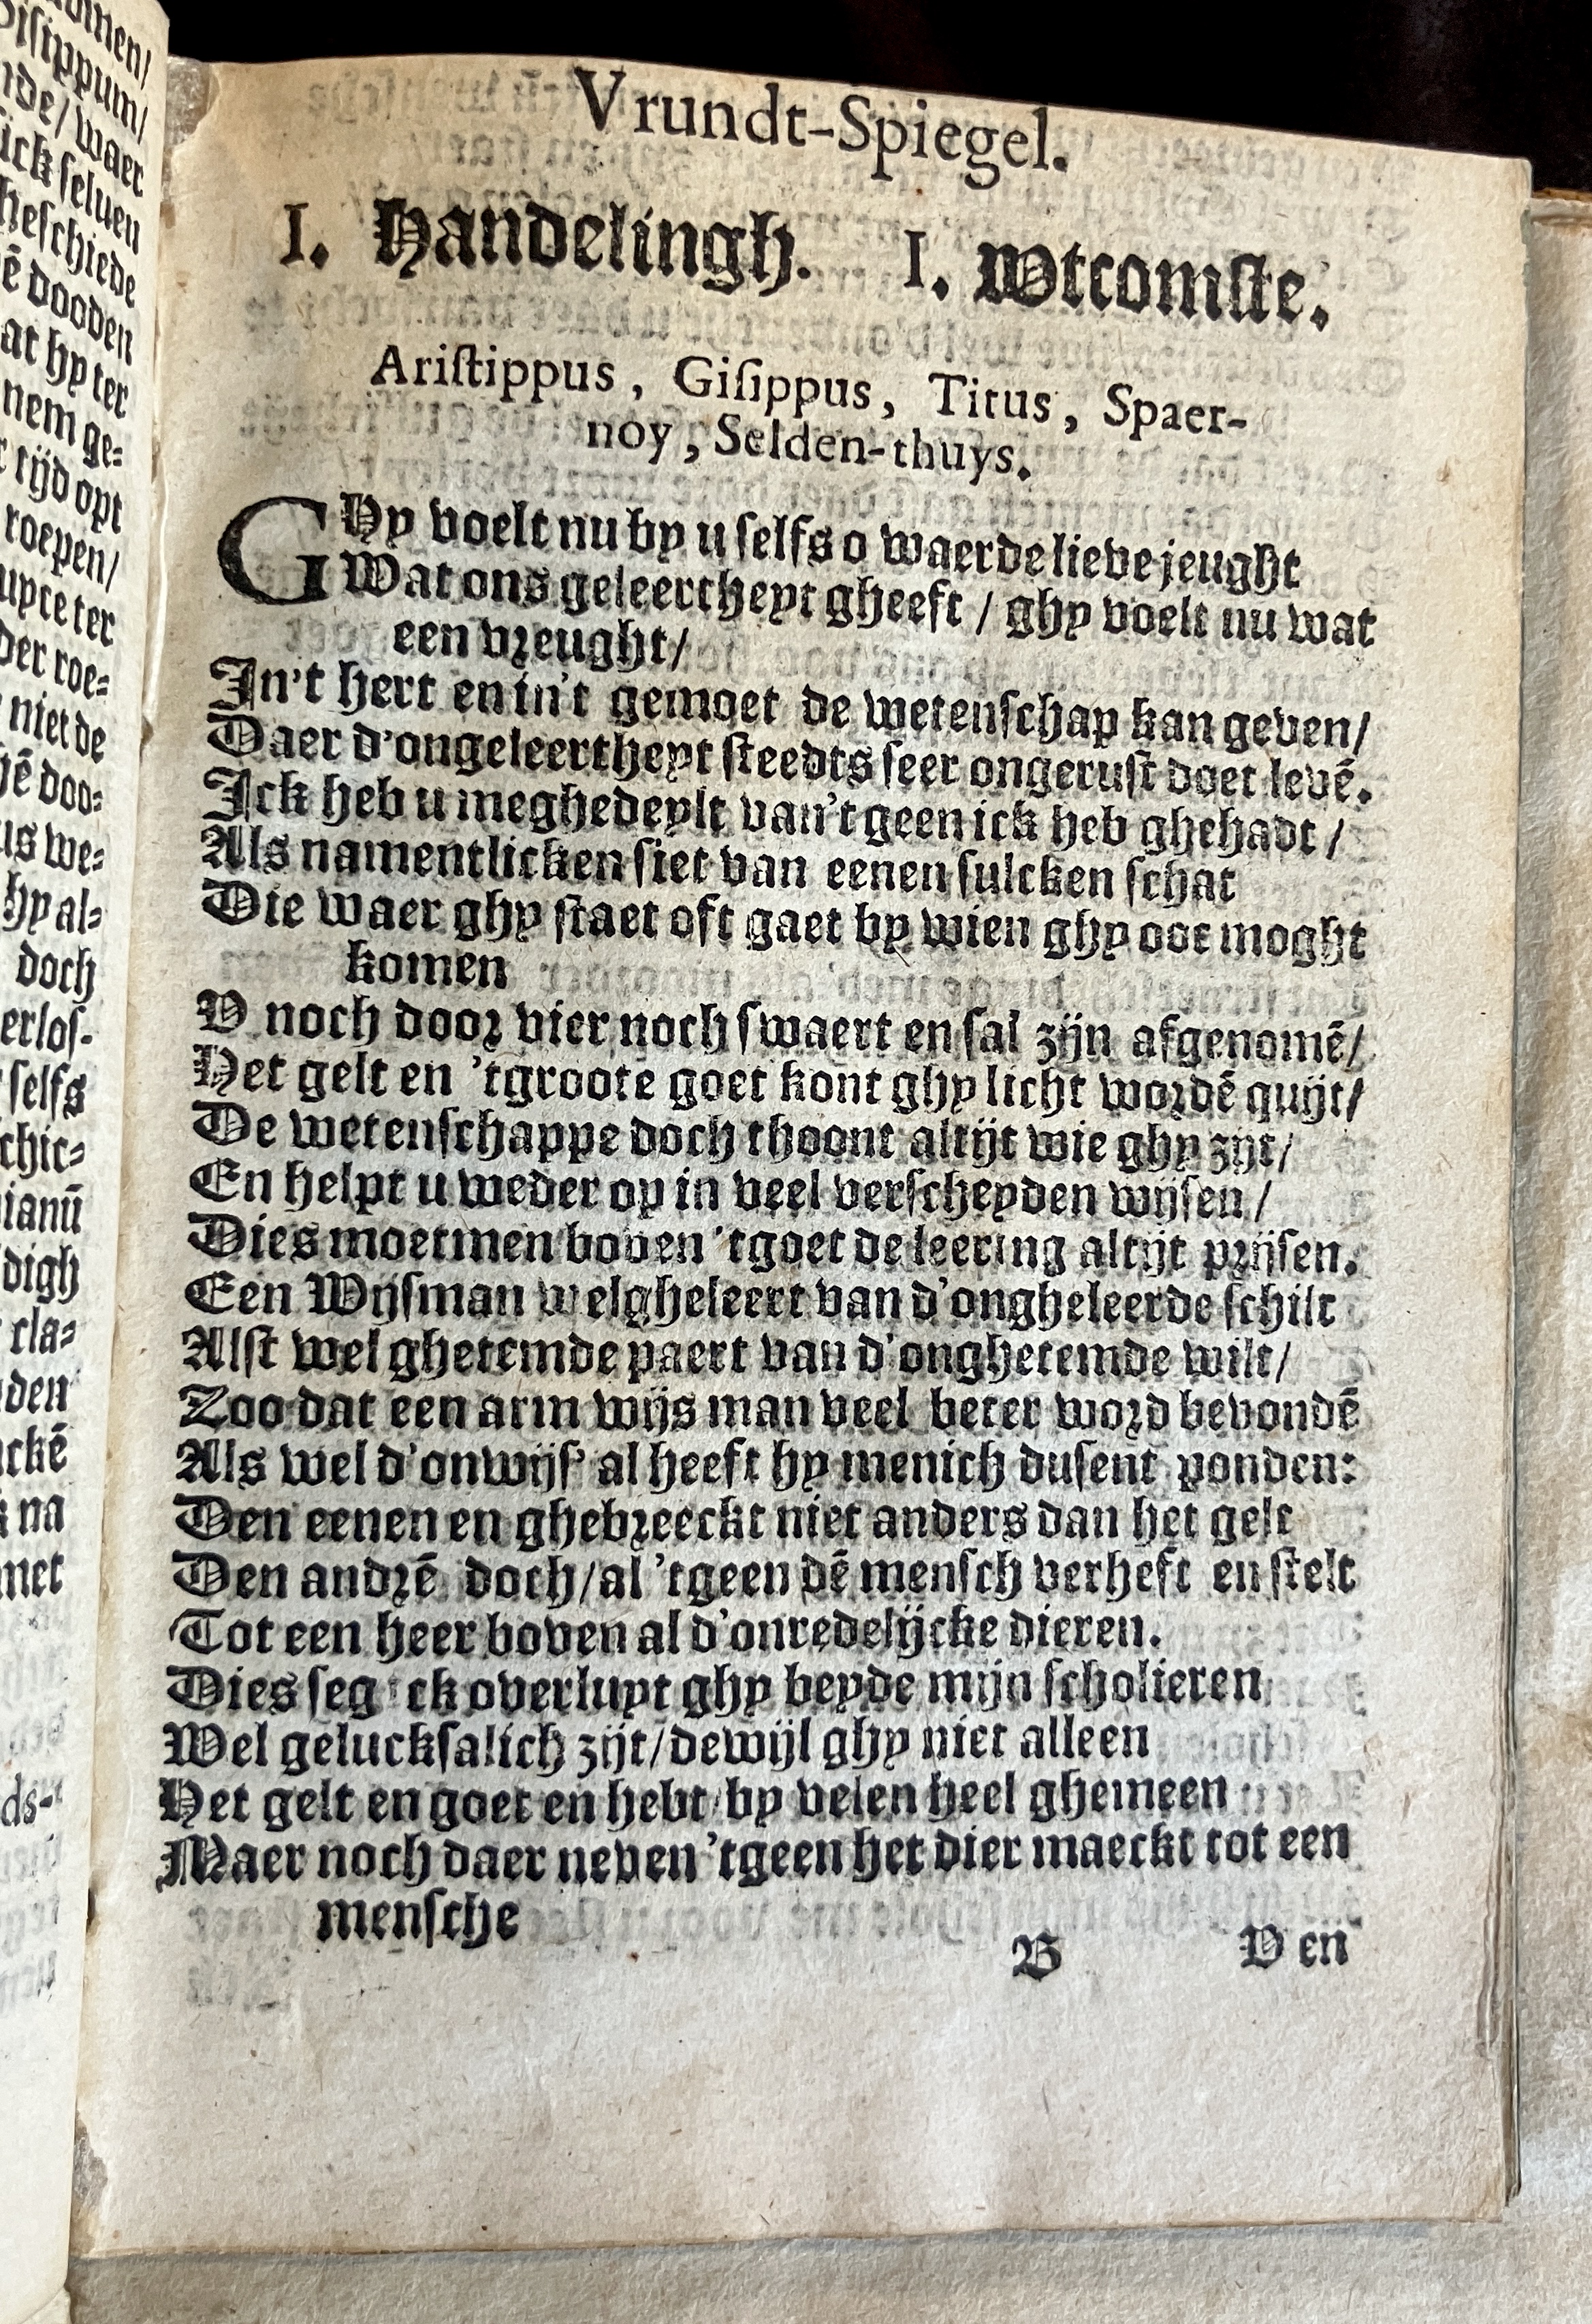 Vrundt-Spiegel.
I. Handelingh. I. Wtcomste.
Ariſtippus, Giſippus, Titus, Spaer-
noy, Selden-thuys.
GHy voelt nu by u ſelfs o waerde lieve jeught
Wat ons geleertheyt gheeft / ghy voelt nu wat
een vreught /
In't hert en in't gemoet de wetenſchap kan geven /
Daer d'ongeleertheyt ſteedts ſeer ongeruſt doet levē.
Ick heb u meghedeylt van't geen ick heb ghehadt /
Als namentlicken ſiet van eenen ſulcken ſchat
Die waer ghy ſtaet oft gaet by wien ghy oot moght
komen
V noch door vier noch ſwaert en ſal zijn afgenomē /
Het gelt en 'tgroote goet kont ghy licht wordē quijt /
De wetenſchappe doch thoont altijt wie ghy zijt /
En helpt u weder op in veel verſcheyden wijſen /
Dies moetmen boven 'tgoet de leering altijt prijſen.
Een Wijſman welgheleert van d'ongheleerde ſchilt
Alſt wel ghetemde paert van d'onghetemde wilt /
Zoo dat een arm wijs man veel beter word bevondē
Als wel d'onwijſ' al heeft hy menich duſent ponden:
Den eenen en ghebreeckt niet anders dan het gelt
Den andrē doch / al 'tgeen dē menſch verheft en ſtelt
Tot een heer boven al d'onredelijcke dieren.
Dies ſeg ick overluyt ghy beyde mijn ſcholieren
Wel geluckſalich zijt / dewijl ghy niet alleen
Het gelt en goet en hebt by velen heel ghemeen
Maer noch daer neven 'tgeen het dier maeckt tot een
menſche
B V en